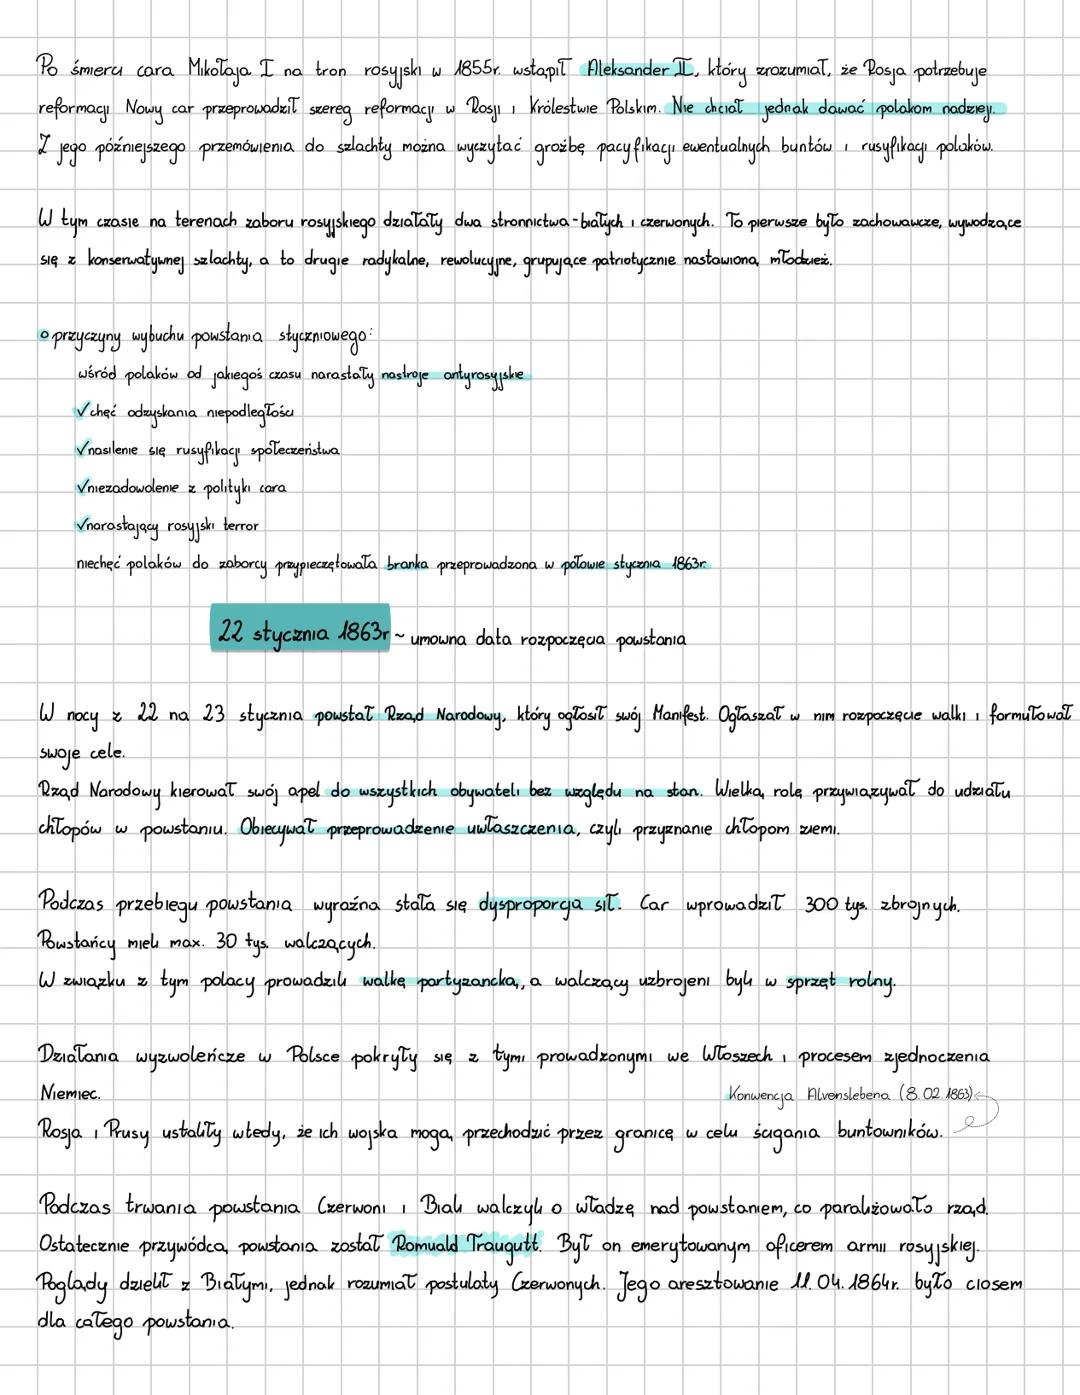 Po śmierci cara Mikołaja I na tron rosyjski w 1855r. wstąpił Aleksander II, który zrozumiał, że Rosja potrzebuje
reformacji Nowy car przeprowadził szereg reformacji w Rosji i Królestwie Polskim. Nie chciał jednak dawać polakom nadziej.
Z jego późniejszego przemówienia do szlachty można wyczytać groźbę pacyfikacji ewentualnych buntów i rusyfikacji polaków.
W tym czasie na terenach zaboru rosyjskiego działały dwa stronnictwa - białych i czerwonych. To pierwsze było zachowawcze, wywodzące
się z konserwatywnej szlachty, a to drugie radykalne, rewolucyjne, grupujące patriotycznie nastawioną młodzież.
o przyczyny wybuchu powstania styczniowego:
wśród polaków od jakiegoś czasu narastały nastroje antyrosyjskie
✓chęć odzyskania niepodległości
✓nasilenie się rusyfikacji społeczeństwa
✓niezadowolenie z polityki cara
✓narastający rosyjski terror
niechęć polaków do zaborcy przypieczętowała branka przeprowadzona w połowie stycznia 1863r.
22 stycznia 1863r ~ umowna data rozpoczęcia powstania
W nocy z 22 na 23 stycznia powstał Rząd Narodowy, który ogłosił swój Manifest. Ogłaszał w nim rozpoczęcie walki i formułował
swoje cele.
Rząd Narodowy kierował swój apel do wszystkich obywateli bez względu na stan. Wielką rolę przywiązywał do udziału
chłopów w powstaniu. Obiecywał przeprowadzenie uwłaszczenia, czyli przyznanie chłopom ziemi.
Podczas przebiegu powstania wyraźna stała się dysproporcja sił. Car wprowadził 300 tys. zbrojnych.
Powstańcy mieli max. 30 tys. walczących.
W związku z tym polacy prowadzili walkę partyzancką, a walczący uzbrojeni byli w sprzęt rolny.
Działania wyzwoleńcze w Polsce pokryły się z tymi prowadzonymi we Włoszech i procesem zjednoczenia
Niemiec.
Konwencja Alvenslebena (8.02.1863)
Rosja i Prusy ustaliły wtedy, że ich wojska mogą przechodzić przez granicę w celu ścigania buntowników.
Podczas trwania powstania Czerwoni i Biali walczyli o władzę nad powstaniem, co paraliżowało rząd.
Ostatecznie przywódcą powstania został Romuald Traugutt. Był on emerytowanym oficerem armii rosyjskiej.
Poglądy dzielił z Białymi, jednak rozumiał postulaty Czerwonych. Jego aresztowanie 11.04.1864r. było ciosem
dla całego powstania.